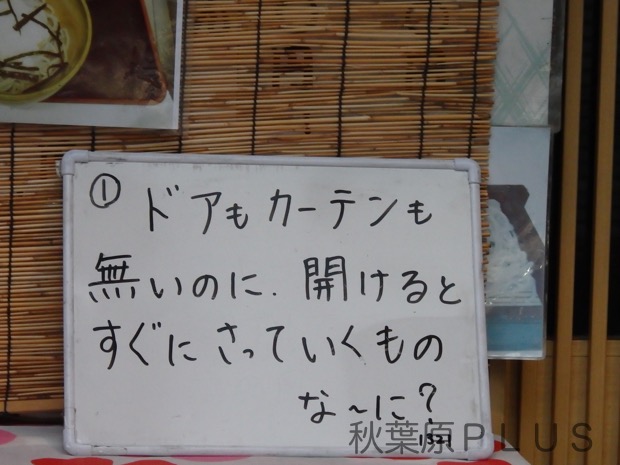 ① ドアもカーテンも
無いのに、開けると
すぐにさっていくもの
な～に？
1321
秋葉原PLUS